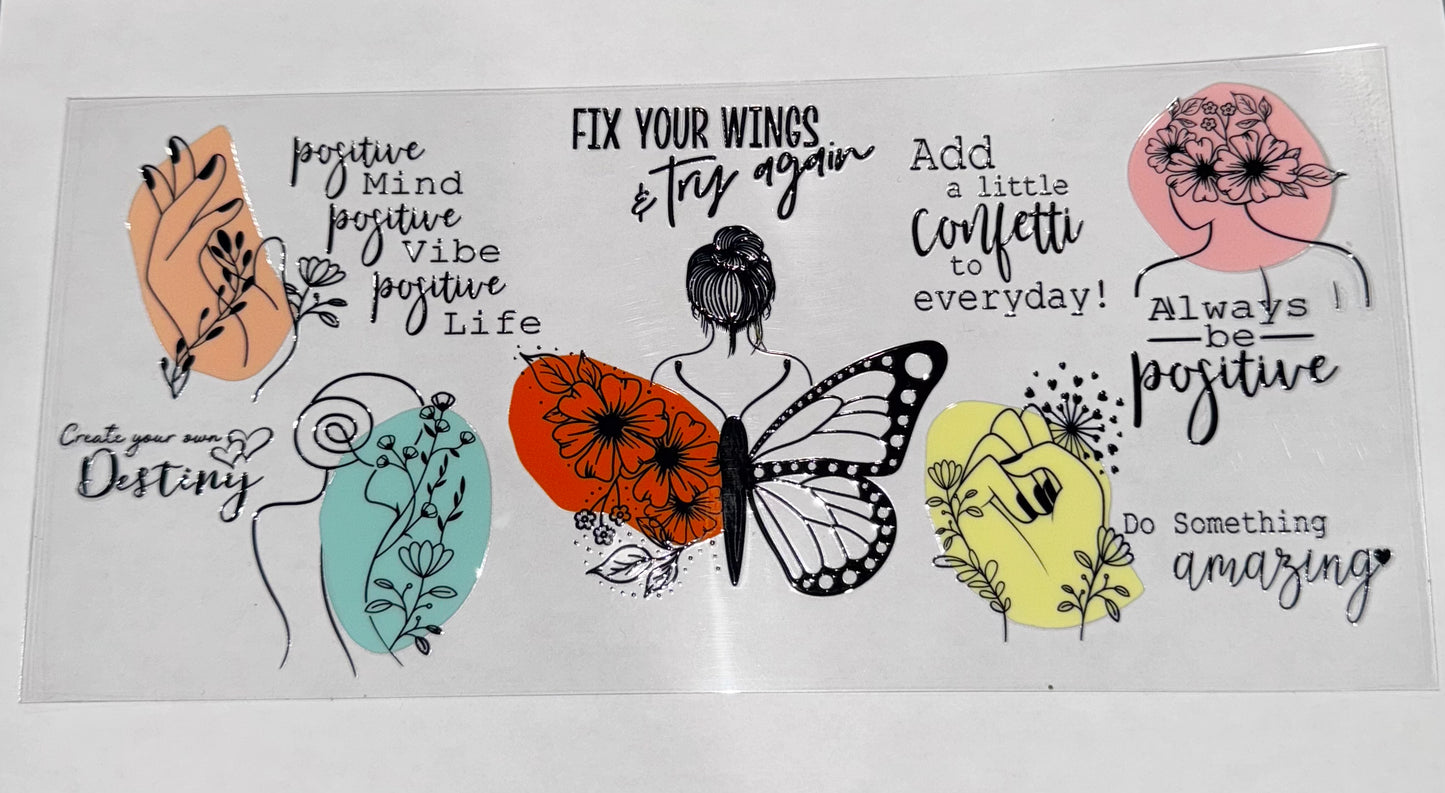 positive
Mind
positive
Vibe
positive
Life
FIX YOUR WINGS
& try again
Add
a little
Confetti
to
everyday!
Always
be
positive
Create your own
Destiny
Do Something
amazing